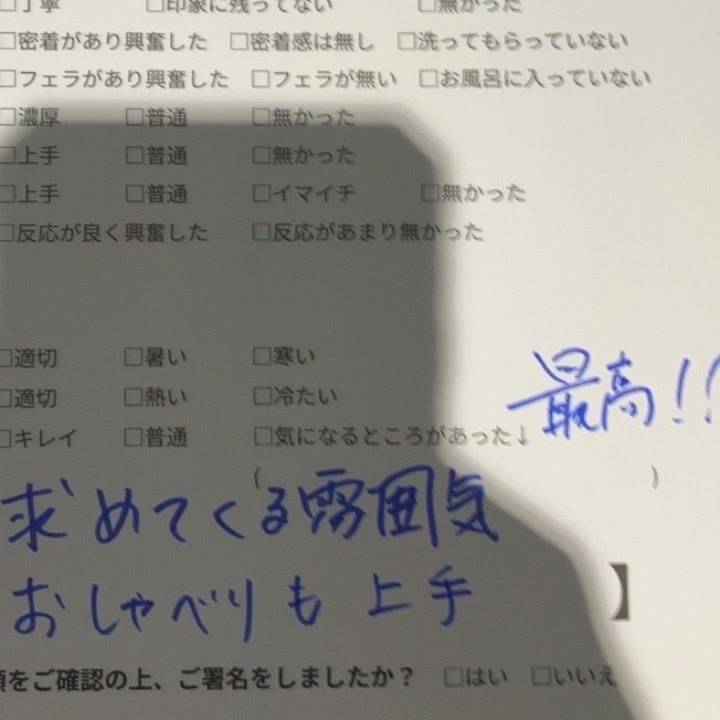 □丁寧 □印象に残ってない □無かった
□密着があり興奮した □密着感は無し □洗ってもらっていない
□フェラがあり興奮した □フェラが無い □お風呂に入っていない
□濃厚 □普通 □無かった
□上手 □普通 □無かった
□上手 □普通 □イマイチ □無かった
□反応が良く興奮した □反応があまり無かった
□適切 □暑い □寒い
□適切 □熱い □冷たい
最高!!
□キレイ □普通 □気になるところがあった↓
( )
求めてくる雰囲気
おしゃべりも上手
】
をご確認の上、ご署名をしましたか？ □はい □いいえ